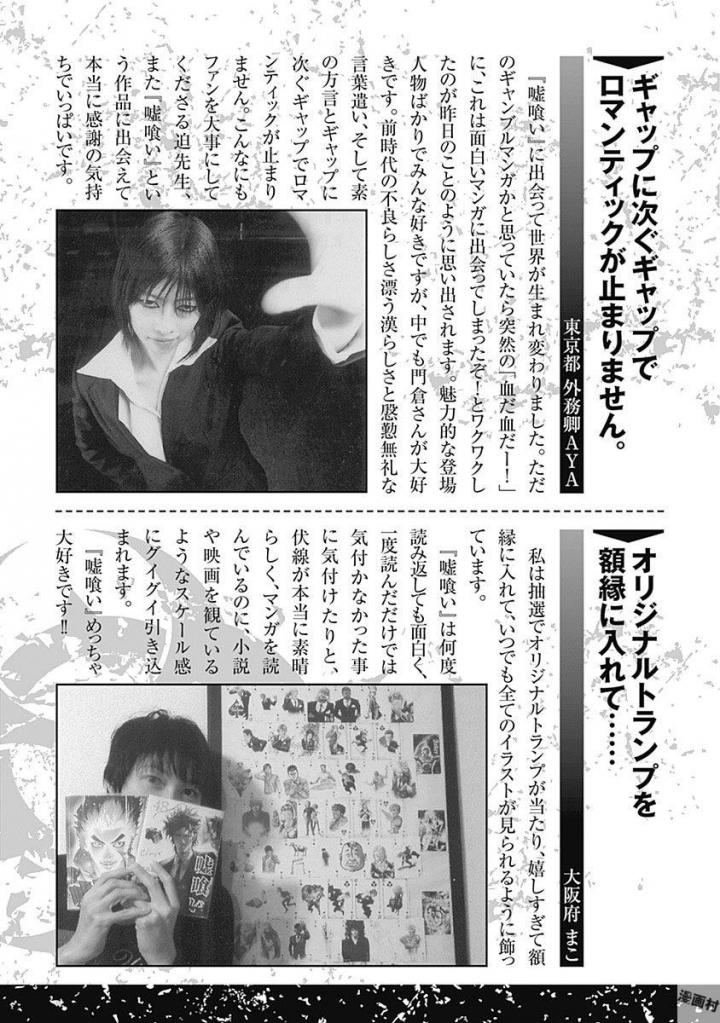 ギャップに次ぐギャップで
ロマンティックが止まりません。
東京都 外務卿AYA
『嘘喰い』に出会って世界が生まれ変わりました。ただ
のギャンブルマンガかと思っていたら突然の「血だ血だー！」
に、これは面白いマンガに出会ってしまったぞ！とワクワクし
たのが昨日のことのように思い出されます。魅力的な登場
人物ばかりでみんな好きですが、中でも門倉さんが大好
きです。前時代の不良らしさ漂う漢らしさと慇懃無礼な
言葉遣い、そして素
の方言とギャップに
次ぐギャップでロマ
ンティックが止まり
ません。こんなにも
ファンを大事にして
くださる迫先生、
また『嘘喰い』とい
う作品に出会えて
本当に感謝の気持
ちでいっぱいです。
オリジナルトランプを
額縁に入れて……
大阪府 まこ
私は抽選でオリジナルトランプが当たり、嬉しすぎて額
縁に入れて、いつでも全てのイラストが見られるように飾っ
ています。
『嘘喰い』は何度
読み返しても面白く、
一度読んだだけでは
気付かなかった事
に気付けたりと、
伏線が本当に素晴
らしく、マンガを読
んでいるのに、小説
や映画を観ている
ようなスケール感
にグイグイ引き込
まれます。
『嘘喰い』めっちゃ
大好きです!!
嘘喰い
漫画村